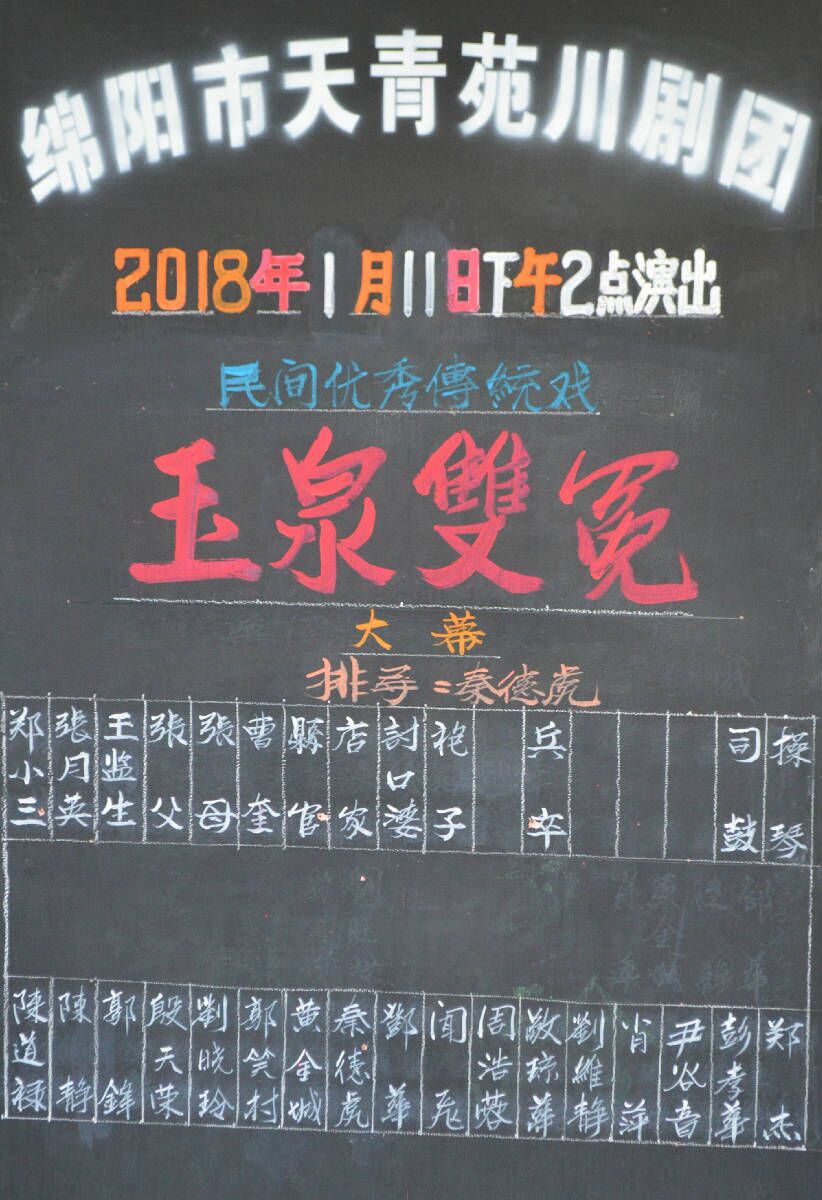 绵阳市天青苑川剧团
2018年1月11日下午2点演出
民间优秀傳統戏
玉泉雙冤
大幕
排导:秦德虎
郑小三
張月英
王监生
張父
張母
曹奎
縣官
店家
討口婆
袍子
兵卒
司鼓
操琴
陳道禄
陳静
郭鉾
殷天荣
劉晓玲
郭笑村
黄金城
秦德虎
鄧華
闻飛
周浩蓉
敬琼華
劉維静
肖萍
尹谷音
彭孝華
郑杰